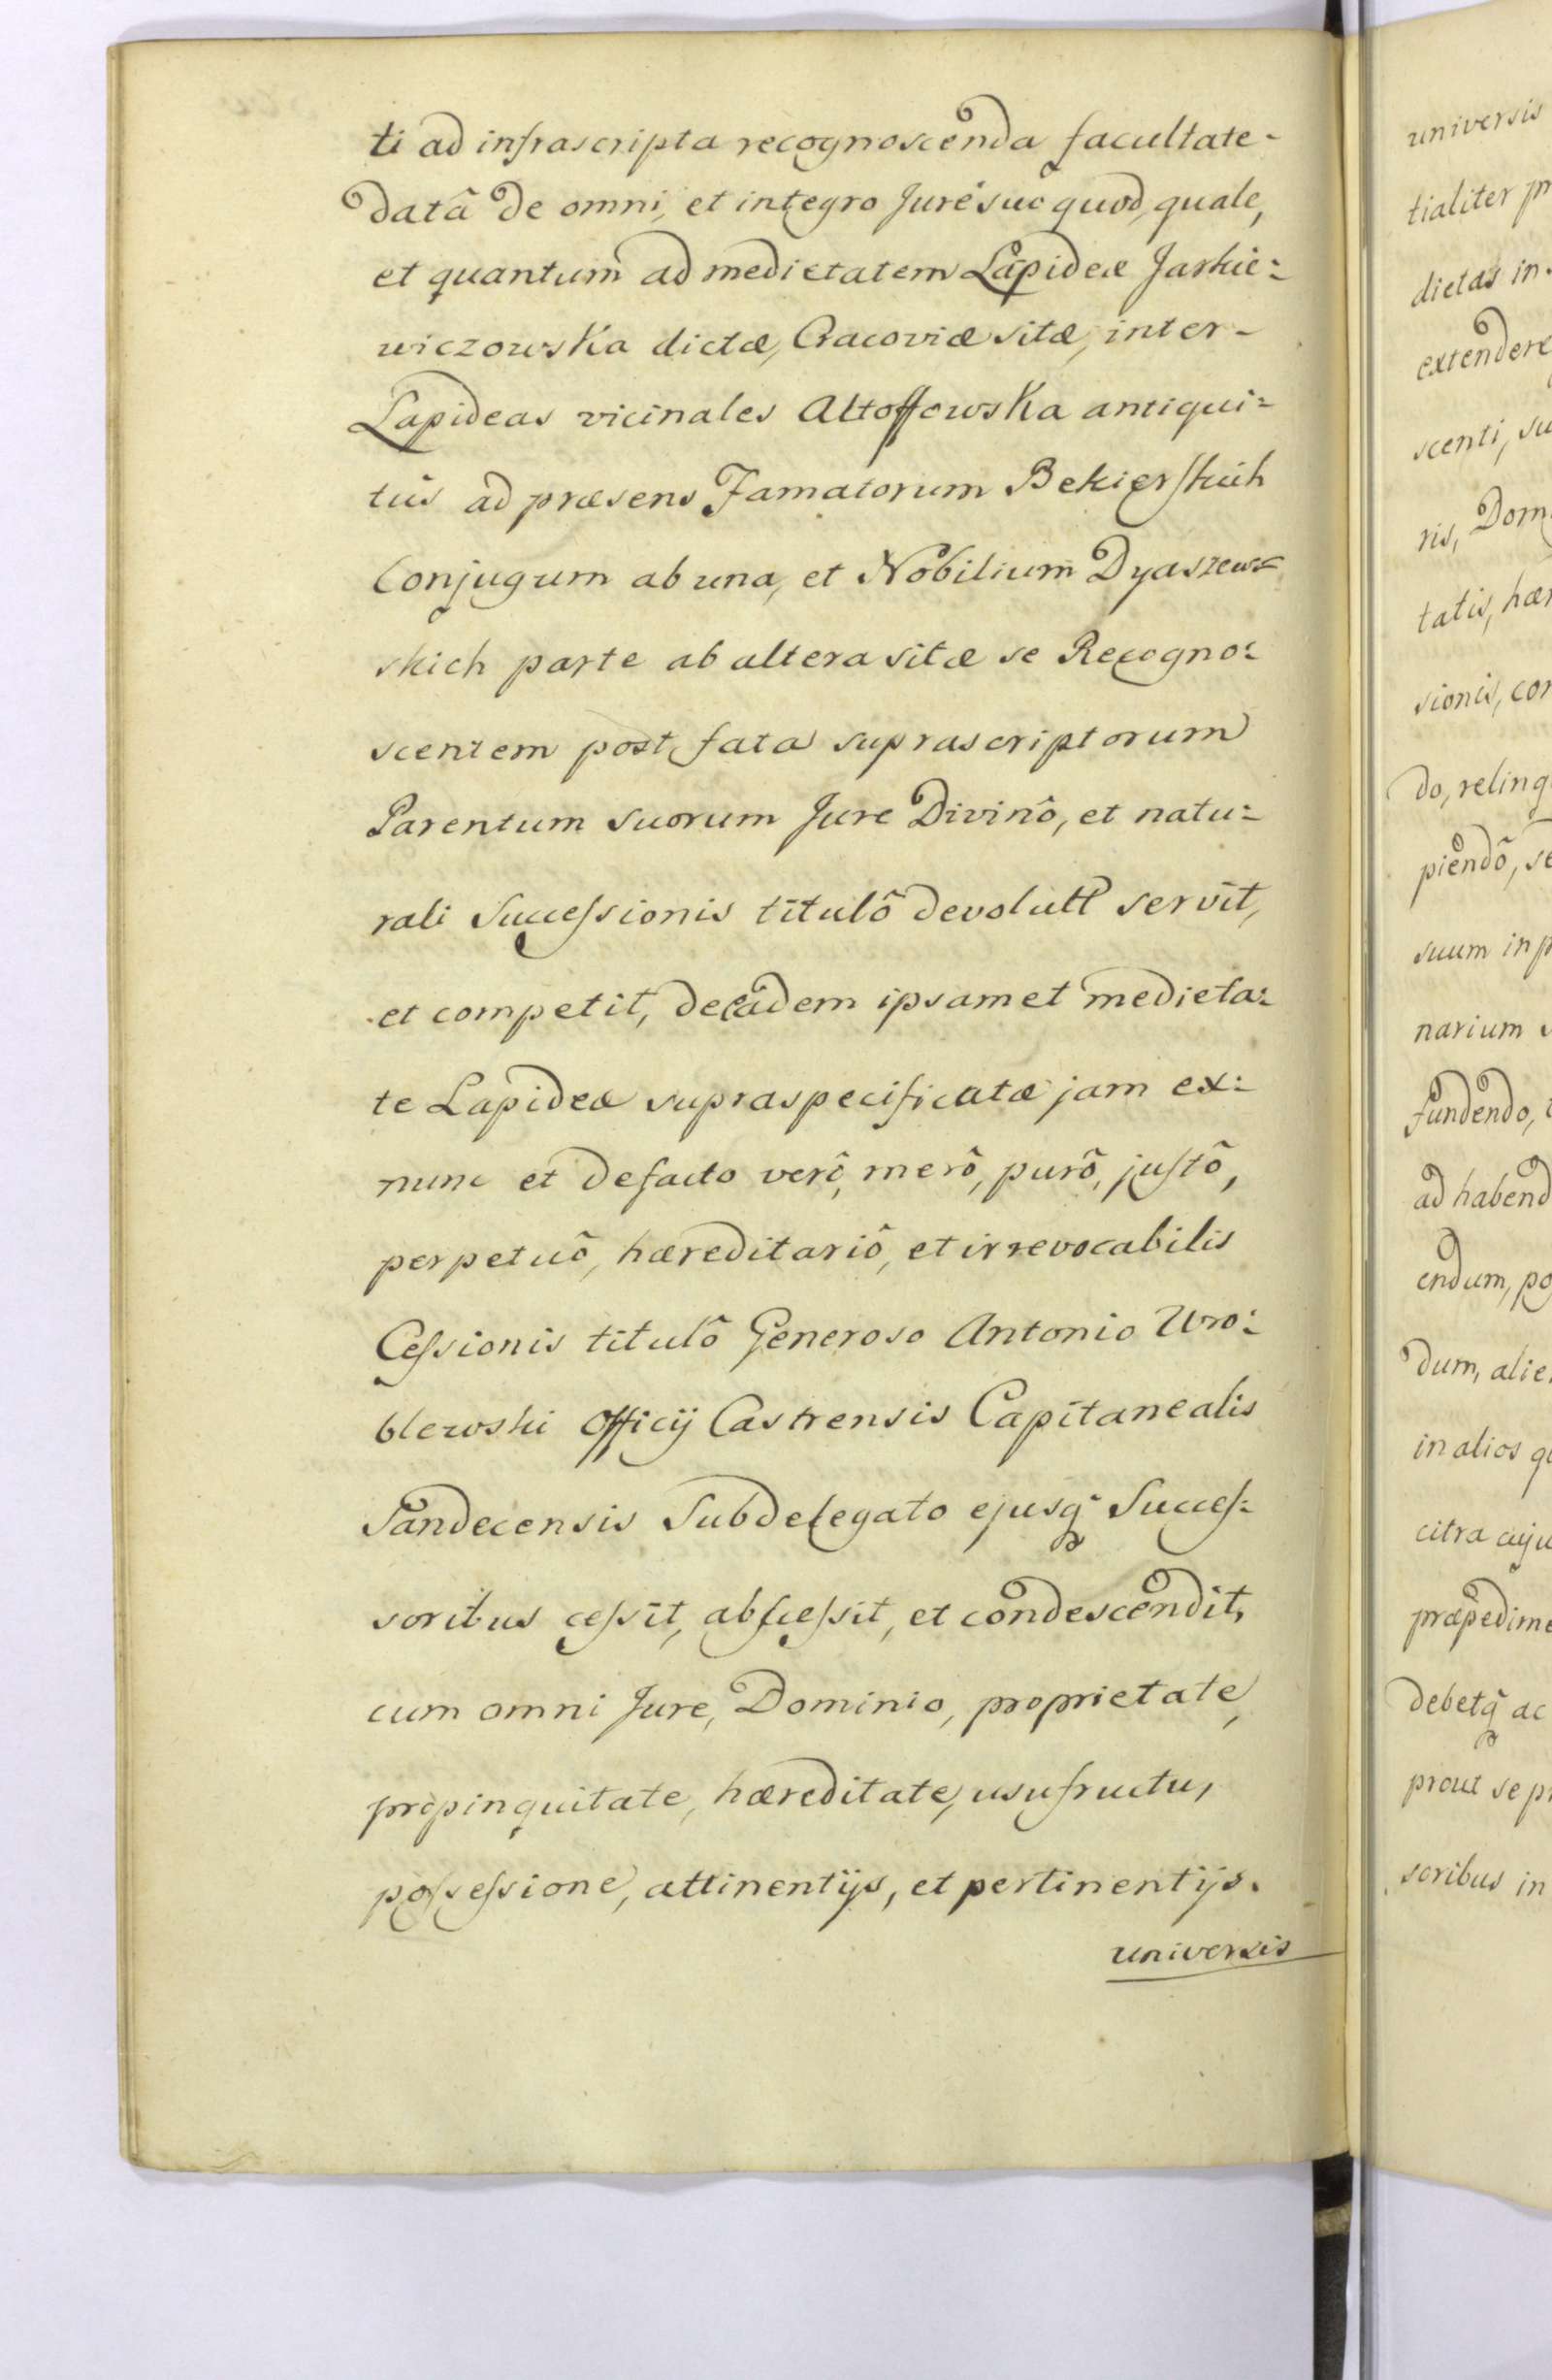 ti ad infrascripta recognoscenda facultate-
datâ de omni, et integro Jure suo quod, quale,
et quantum ad medietatem Lapideæ Jarkie=
wiczowska dictæ, Cracoviæ sitæ, inter-
Lapideas vicinales Altoffowska antiqui=
tus ad præsens Famatorum Bekierskich
Conjugum ab una, et Nobilium Dyaszew=
skich parte ab altera sitæ se Recogno=
scentem post fata suprascriptorum
Parentum suorum Jure Divinô, et natu=
rali Successionis titulô devolutô servit,
et competit, de eâdem ipsamet medieta=
te Lapideæ supraspecificatæ jam ex=
nunc et de facto verô, merô, purô, justô,
perpetuô, hæreditariô, et irrevocabilis
Cessionis titulô Generoso Antonio Wro=
blewski Officij Castrensis Capitanealis
Sandecensis Subdelegato ejusq Succes=
soribus cessit, abscessit, et condescendit,
cum omni Jure, Dominio, proprietate,
propinquitate, hæreditate, usufructu,
possessione, attinentijs, et pertinentijs.
universis
universis
tialiter
dictas in
extendere
scenti,
ris,
tatis,
sionis,
do,
piendô,
suum in
narium
fundendo,
ad
endum,
dum,
in alios
citra
debetq ac
prout se
soribus in